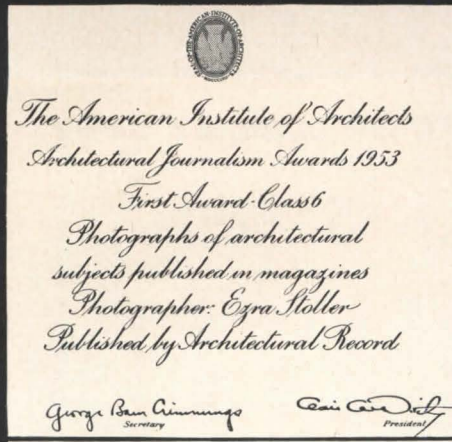 SEAL OF THE AMERICAN INSTITUTE OF ARCHITECTS
The American Institute of Architects
Architectural Journalism Awards 1953
First Award-Class 6
Photographs of architectural
subjects published in magazines
Photographer: Ezra Stoller
Published by Architectural Record
George Bain Cummings
Secretary President